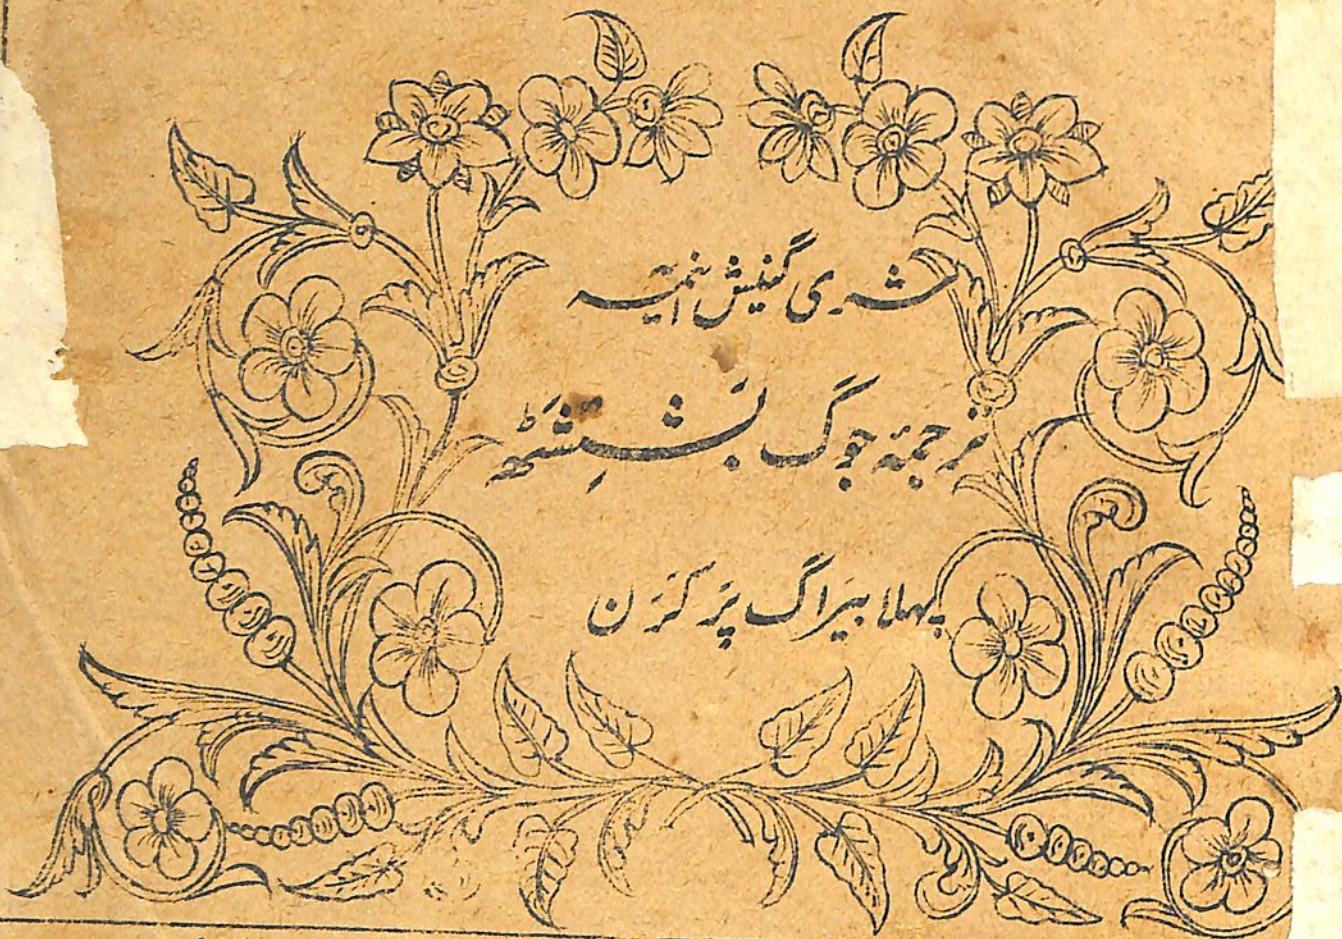 شری گنیش اینمیہ
ترجمۂ جوگ بَشِشَٹھ
پہلا بیَراگ پَرکَرَن